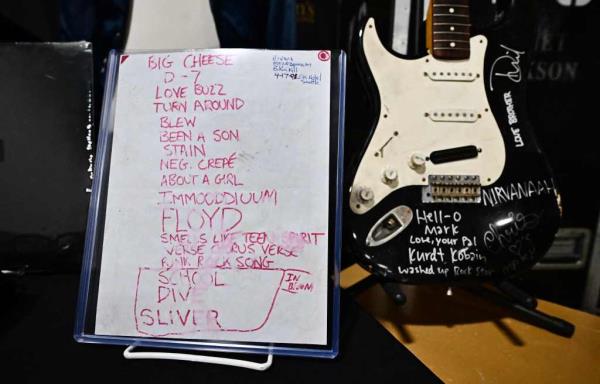 BIG CHEESE
D-7
LOVE BUZZ
TURN AROUND
BLEW
BEEN A SON
STAIN
NEG. CREPÉ
ABOUT A GIRL
IMMOODIUUM
FLOYD
SMELLS LIKE TEEN SPIRIT
VERSE CHORUS VERSE
PUNK ROCK SONG
SCHOOL
DIV
SLIVER
IN
BLOOM
4-17-91
OK Hotel
Seattle
David
LOVE
NIRVANAAH
Hell-O
Mark
Love, your Pal
Kurdt Kobain
washed up Rock Star